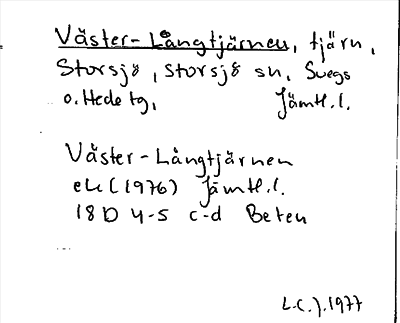 Väster-Långtjärnen, tjärn,
Storsjö, Storsjö sn, Svegs
o. Hede tg, Jämtl. l.
Väster-Långtjärnen
ek (1976) Jämtl. l.
18D 4-5 c-d Beten
L.C.J. 1977